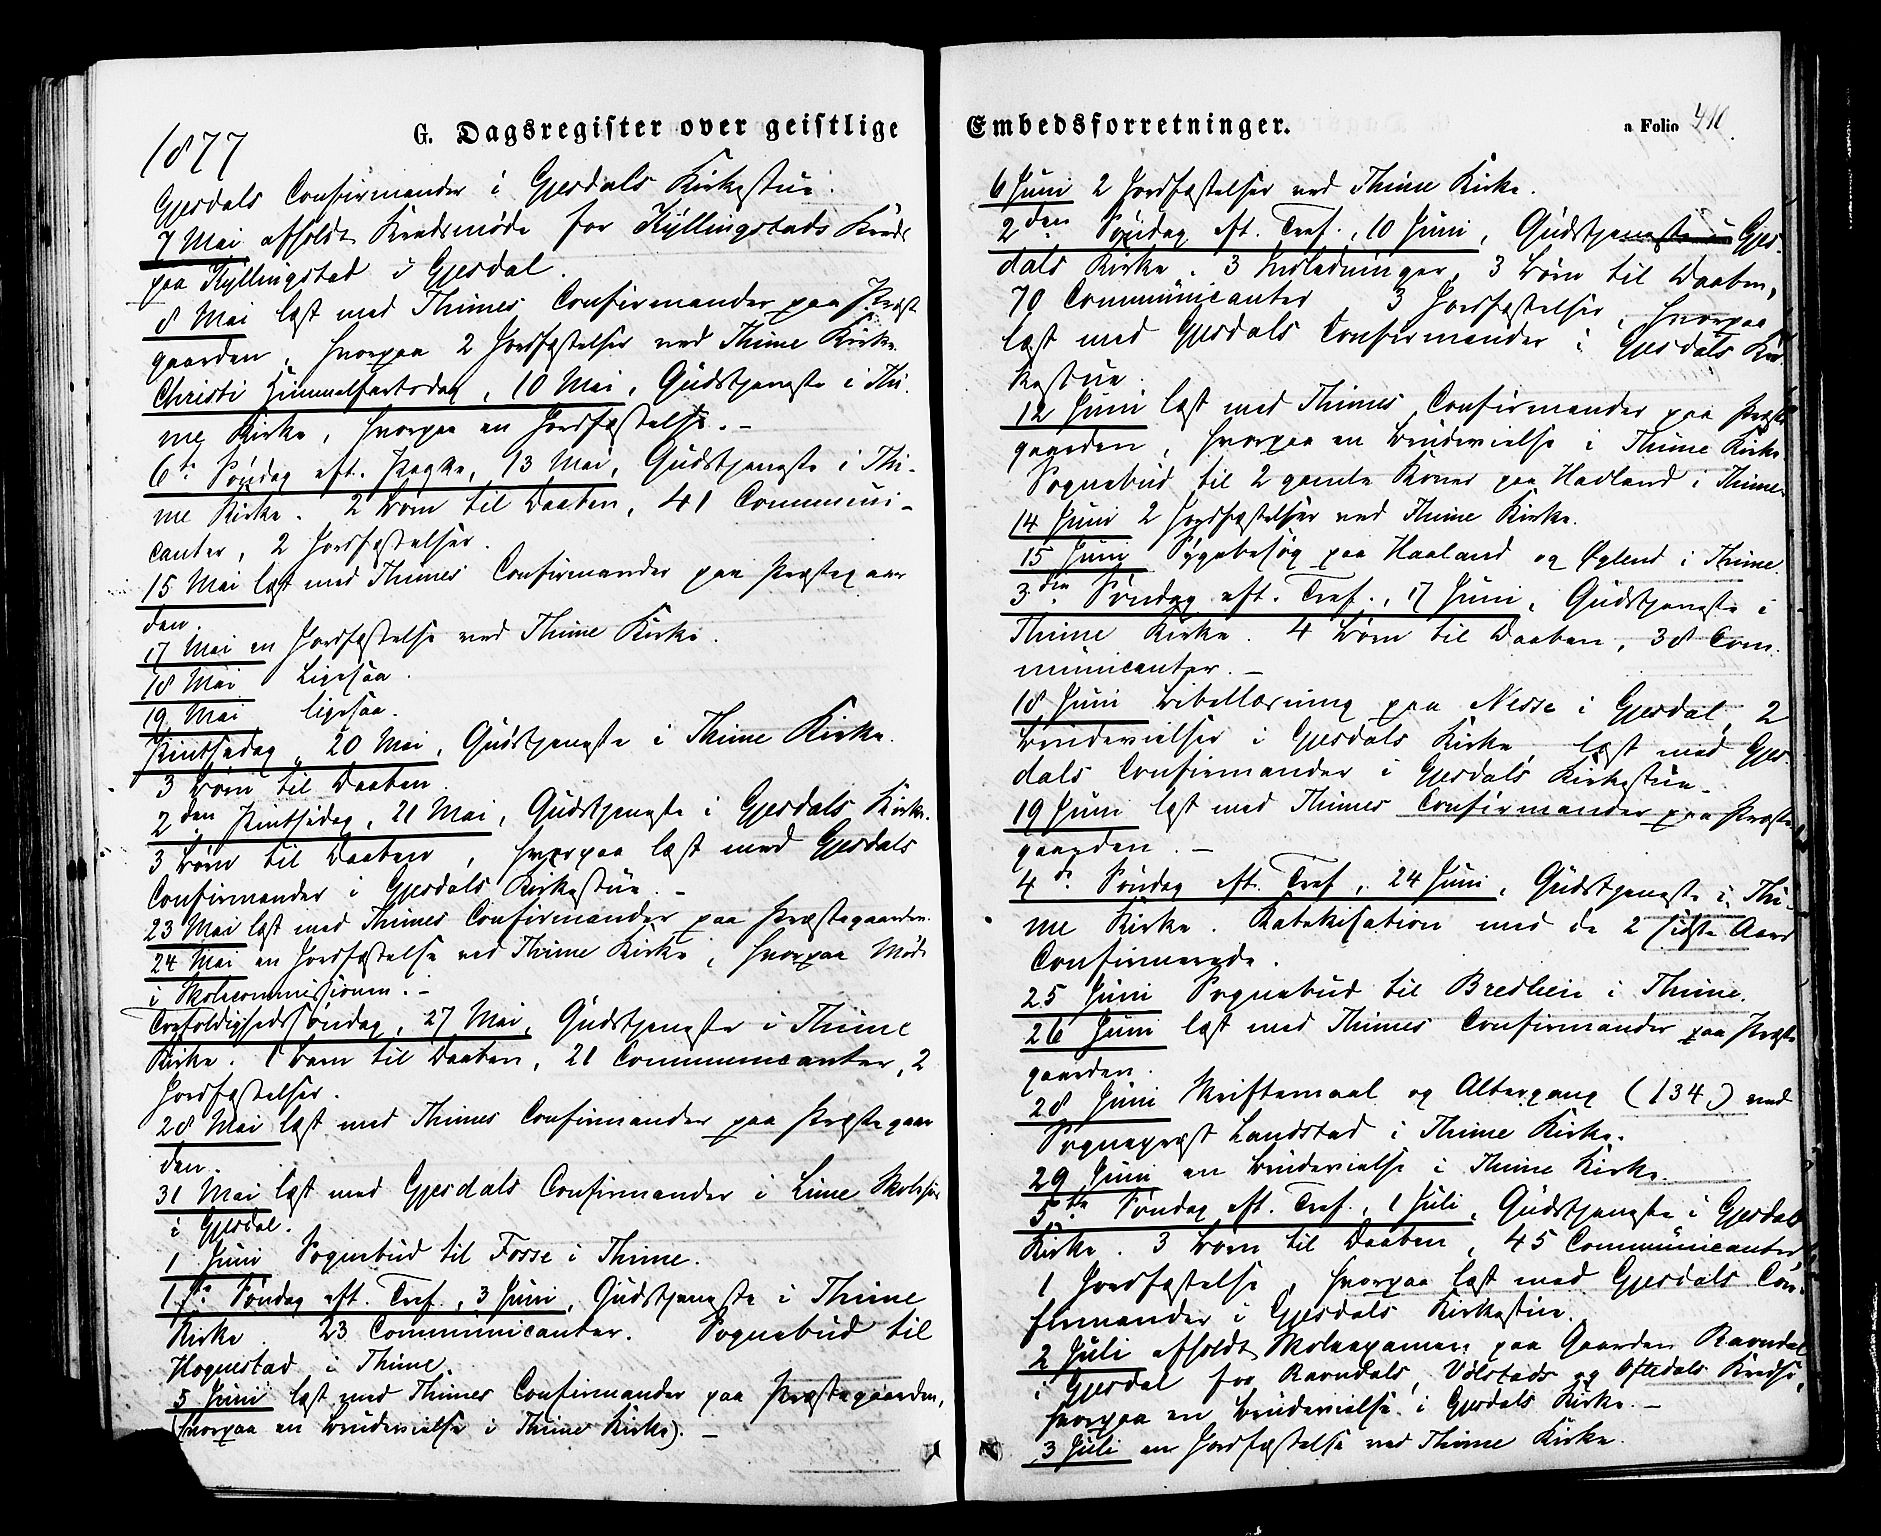 1877
G. Dagsregister over geistlige
Gjesdals Confirmander i Gjesdals Kirkestue.
7 Mai afholdt Kredsmøde for Kyllingstads Kreds
paa Kyllingstad i Gjesdal.
8 Mai læst med Thimes Confirmander paa Præste
gaarden, hvorpaa 2 Jordfæstelser ved Thime Kirke.
Christi Himmelfartsdag, 10 Mai, Gudstjeneste i Thi-
me Kirke, hvorpaa en Jordfæstelse. -
6te Søndag eft. Paaske, 13 Mai, Gudstjeneste i Thi-
me Kirke. 2 Børn til Daaben, 41 Communi-
canter, 2 Jordfæstelser.
15 Mai læst med Thimes Confirmander paa Præstegaar
den.
17 Mai en Jordfæstelse ved Thime Kirke.
18 Mai Ligesaa.
19 Mai ligesaa.
Pintsedag, 20 Mai, Gudstjeneste i Thime Kirke.
3 Børn til Daaben
2den Pintsedag, 21 Mai, Gudstjeneste i Gjesdals Kirke.
3 Børn til Daaben, hvorpaa læst med Gjesdals
Confirmander i Gjesdals Kirkestue. -
23 Mai læst med Thimes Confirmander paa Præstegaarden.
24 Mai en Jordfæstelse ved Thime Kirke, hvorpaa Møde
i Skolecommissionen. -
Trefoldighedssøndag, 27 Mai, Gudstjeneste i Thime
Kirke. 1 Barn til Daaben, 21 Communicanter, 2
Jordfæstelser.
28 Mai læst med Thimes Confirmander paa Præstegaar
den.
31 Mai læst med Gjesdals Confirmander i Lime
i Gjesdal.
1 Juni Sognebud til Fosse i Thime.
1ste Søndag eft. Tref., 3 Juni, Gudstjeneste i Thime
Kirke. 23 Communicanter. Sognebud til
Hognestad i Thime.
5 Juni læst med Thimes Confirmander paa Præstegaarden,
(hvorpaa en Brudevielse i Thime Kirke). -
Embedsforretninger.
a Folio 410.
6 Juni 2 Jordfæstelser ved Thime Kirke.
2den Søndag eft. Tref., 10 Juni, Gudstjeneste i Gjes-
dals Kirke. 3 Indledninger, 3 Børn til Daaben,
70 Communicanter, 3 Jordfæstelser, hvorpaa
læst med Gjesdals Confirmander i Gjesdals Kir-
kestue.
12 Juni læst med Thimes Confirmander paa Præste
gaarden, hvorpaa en Brudevielse i Thime Kirke
Sognebud til 2 gamle Koner paa Hadland i Thime.
14 Juni 2 Jordfæstelser ved Thime Kirke.
15 Juni Sygebesøg paa Haaland og Øglend i Thime.
3die Søndag eft. Tref., 17 Juni, Gudstjeneste i
Thime Kirke. 4 Børn til Daaben, 38 Com-
municanter. -
18 Juni Bibellæsning paa Nesse i Gjesdal, 2
Brudevielser i Gjesdals Kirke, læst med Gjes
dals Confirmander i Gjesdals Kirkestue.
19 Juni læst med Thimes Confirmander paa Præste
gaarden. -
4de Søndag eft. Tref., 24 Juni, Gudstjeneste i Thi-
me Kirke. Katekisation med de 2 sidste Aars
Confirmerede.
25 Juni Sognebud til Bredlien i Thime.
26 Juni læst med Thimes Confirmander paa Præste
gaarden.
28 Juni Skriftemaal og Altergang (134) ved
Sognepræst Landstad i Thime Kirke.
29 Juni en Brudevielse i Thime Kirke.
5te Søndag eft. Tref., 1 Juli, Gudstjeneste i Gjesdals
Kirke. 3 Børn til Daaben, 45 Communicanter
1 Jordfæstelse, hvorpaa læst med Gjesdals Con-
firmander i Gjesdals Kirkestue.
2 Juli afholdt Skoleexamen paa Gaarden Ravndal
i Gjesdal for Ravndals, Vølstads og Oftedals Kredse,
hvorpaa en Brudevielse i Gjesdals Kirke. -
3 Juli en Jordfæstelse ved Thime Kirke.